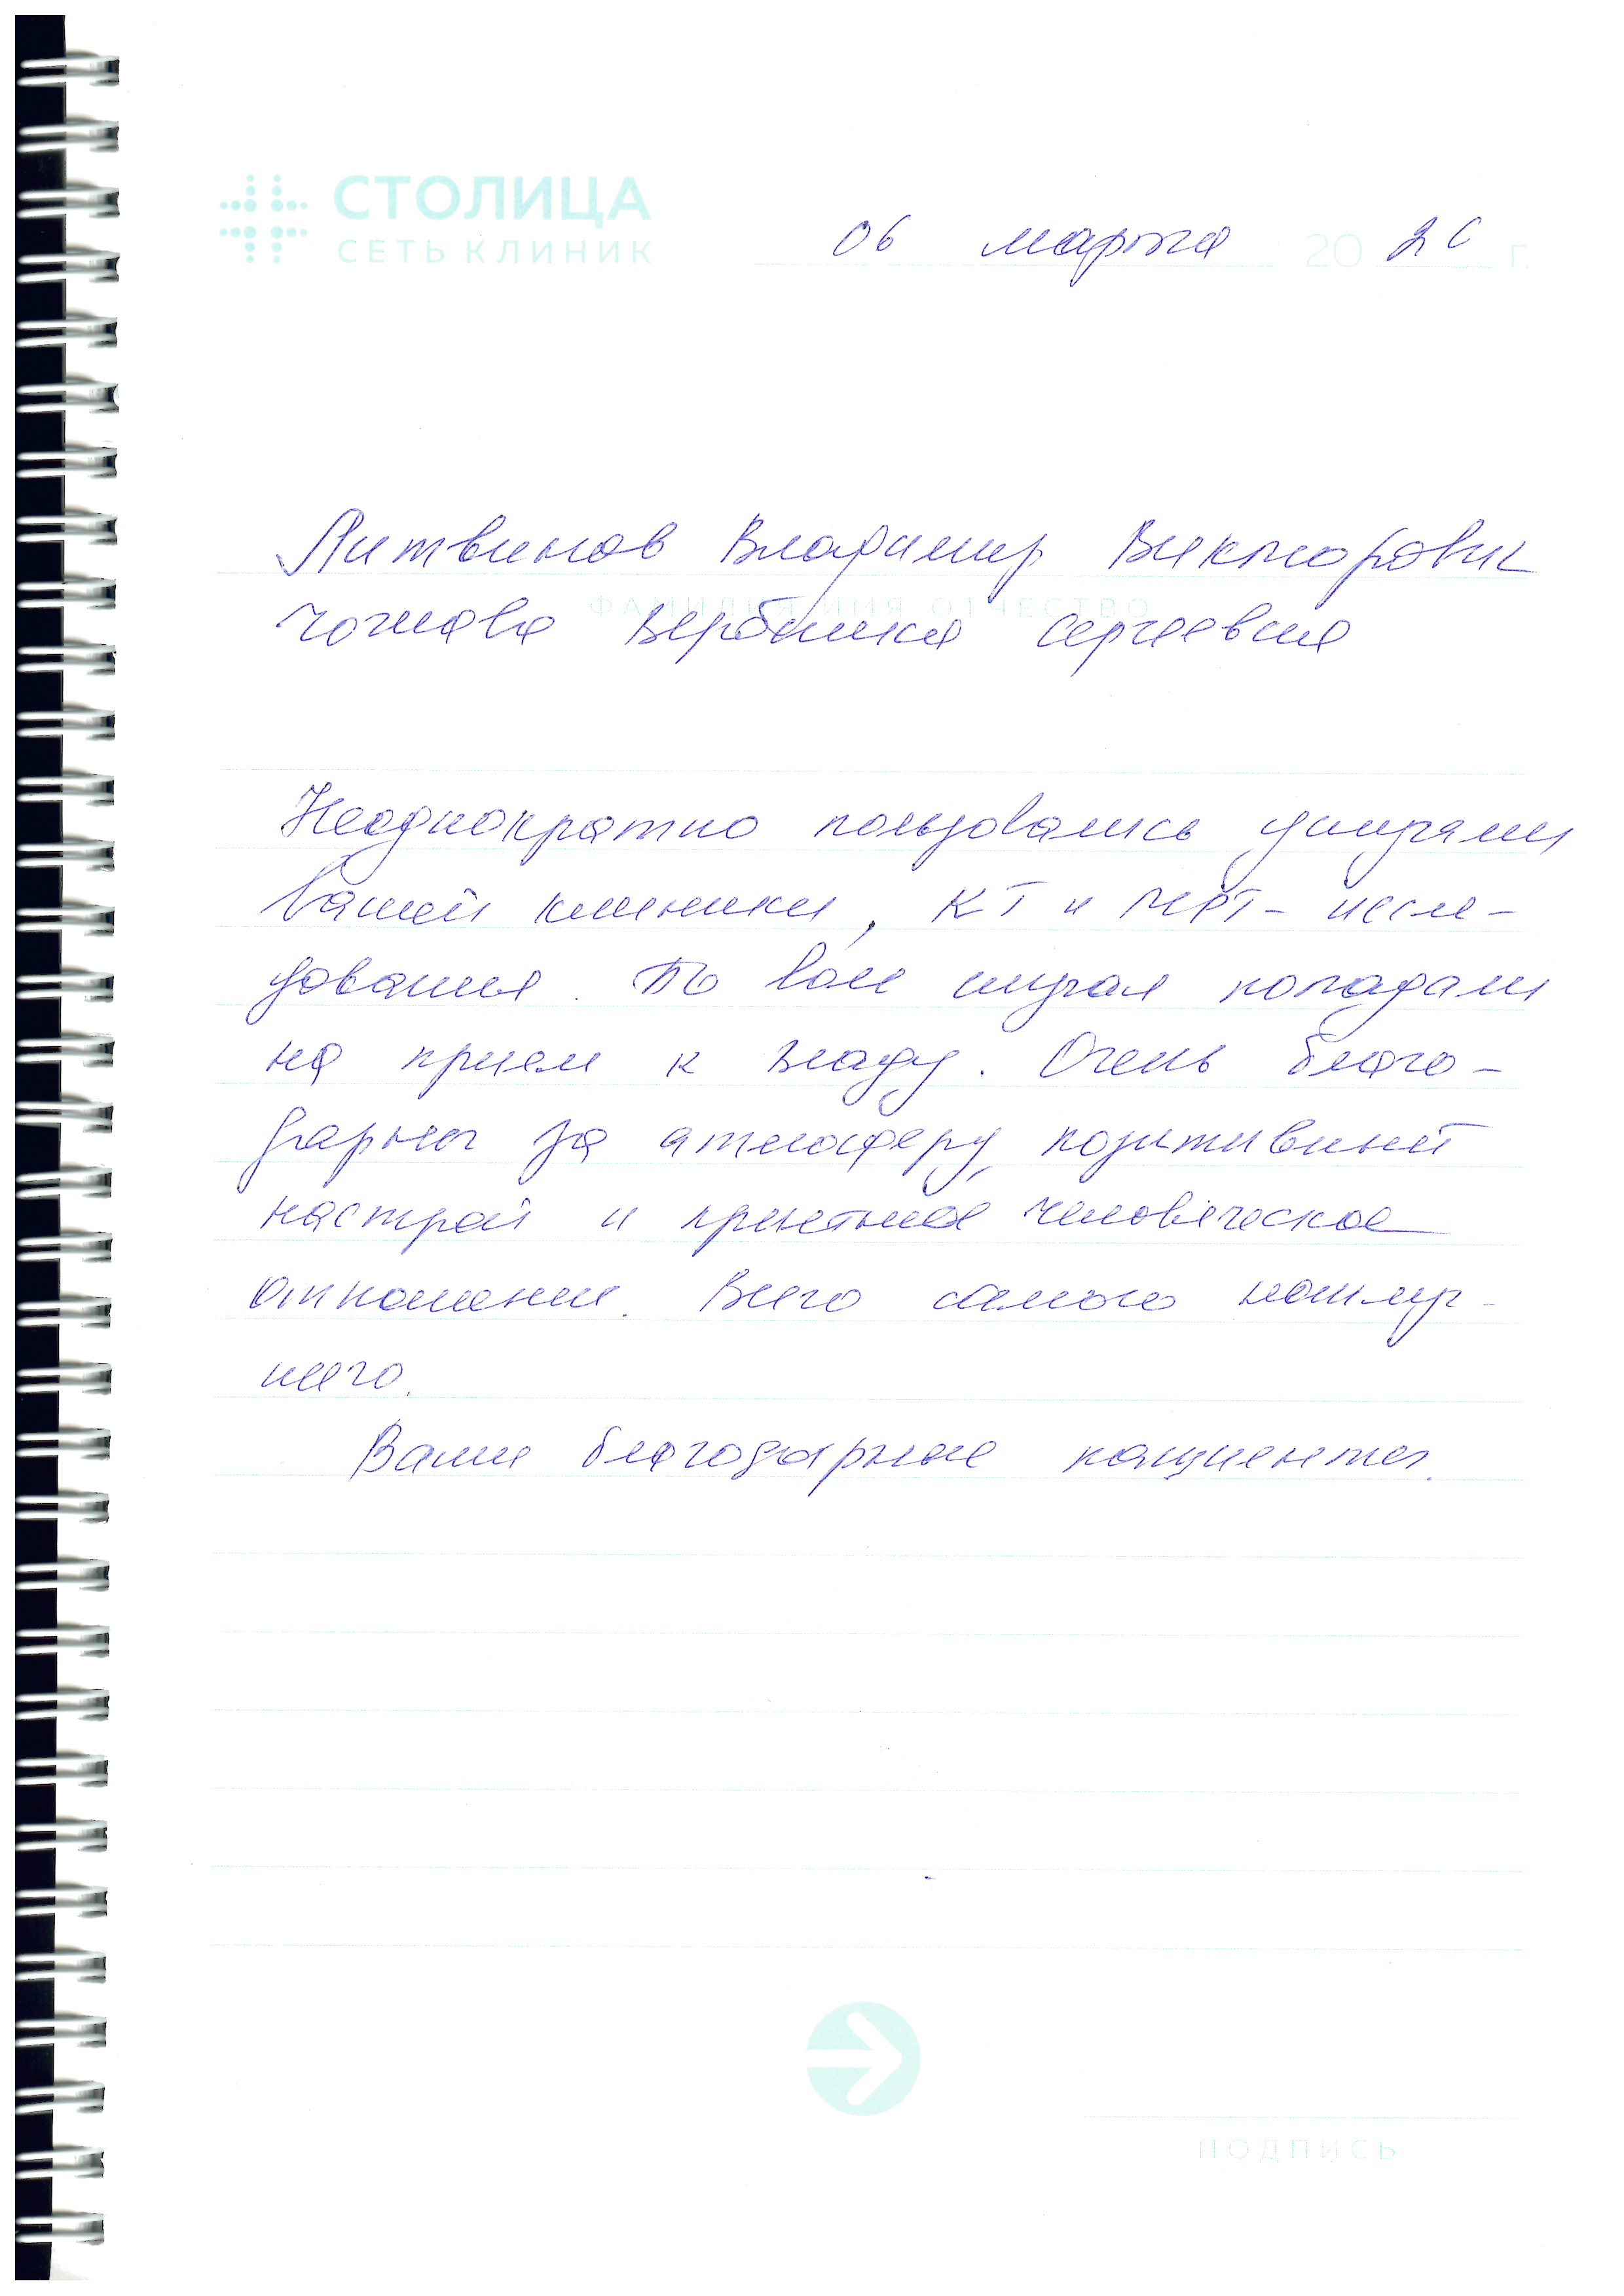 СТОЛИЦА
СЕТЬ КЛИНИК
06 марта 20 20 г.
Литвинов Владимир Викторович
ФАМИЛИЯ ИМЯ ОТЧЕСТВО
Сергеевна
Неоднократно пользовались услугами
Вашей клиники, КТ и МРТ- иссле-
дования. По воле случая попадали
на прием к Владу. Очень благо-
дарны за атмосферу, позитивный
настрой и приятное человеческое
отношение. Всего самого наилуч-
шего.
Ваши благодарные пациенты.
ПОДПИСЬ